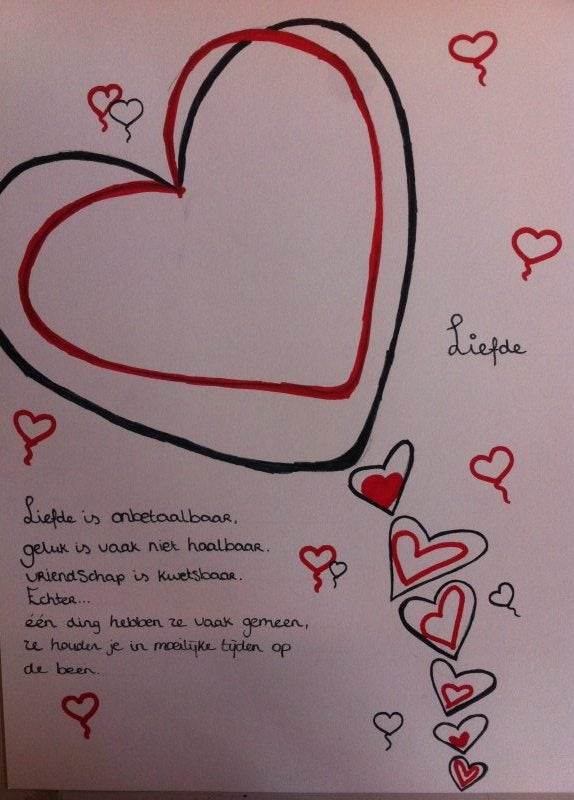 Liefde
Liefde is onbetaalbaar,
geluk is vaak niet haalbaar.
vriendschap is kwetsbaar.
Echter...
één ding hebben ze vaak gemeen,
ze houden je in moeilijke tijden op
de been.